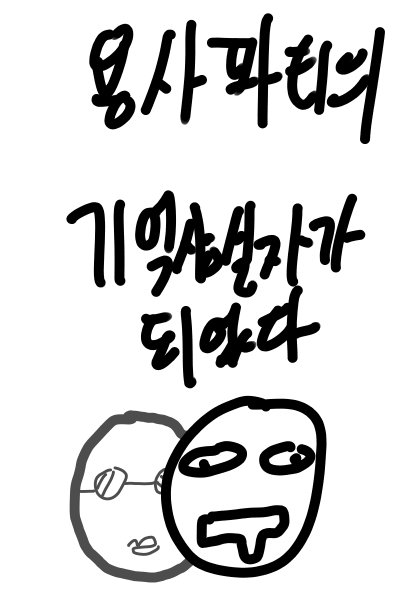 용사파티의
기억상실자가
되었다